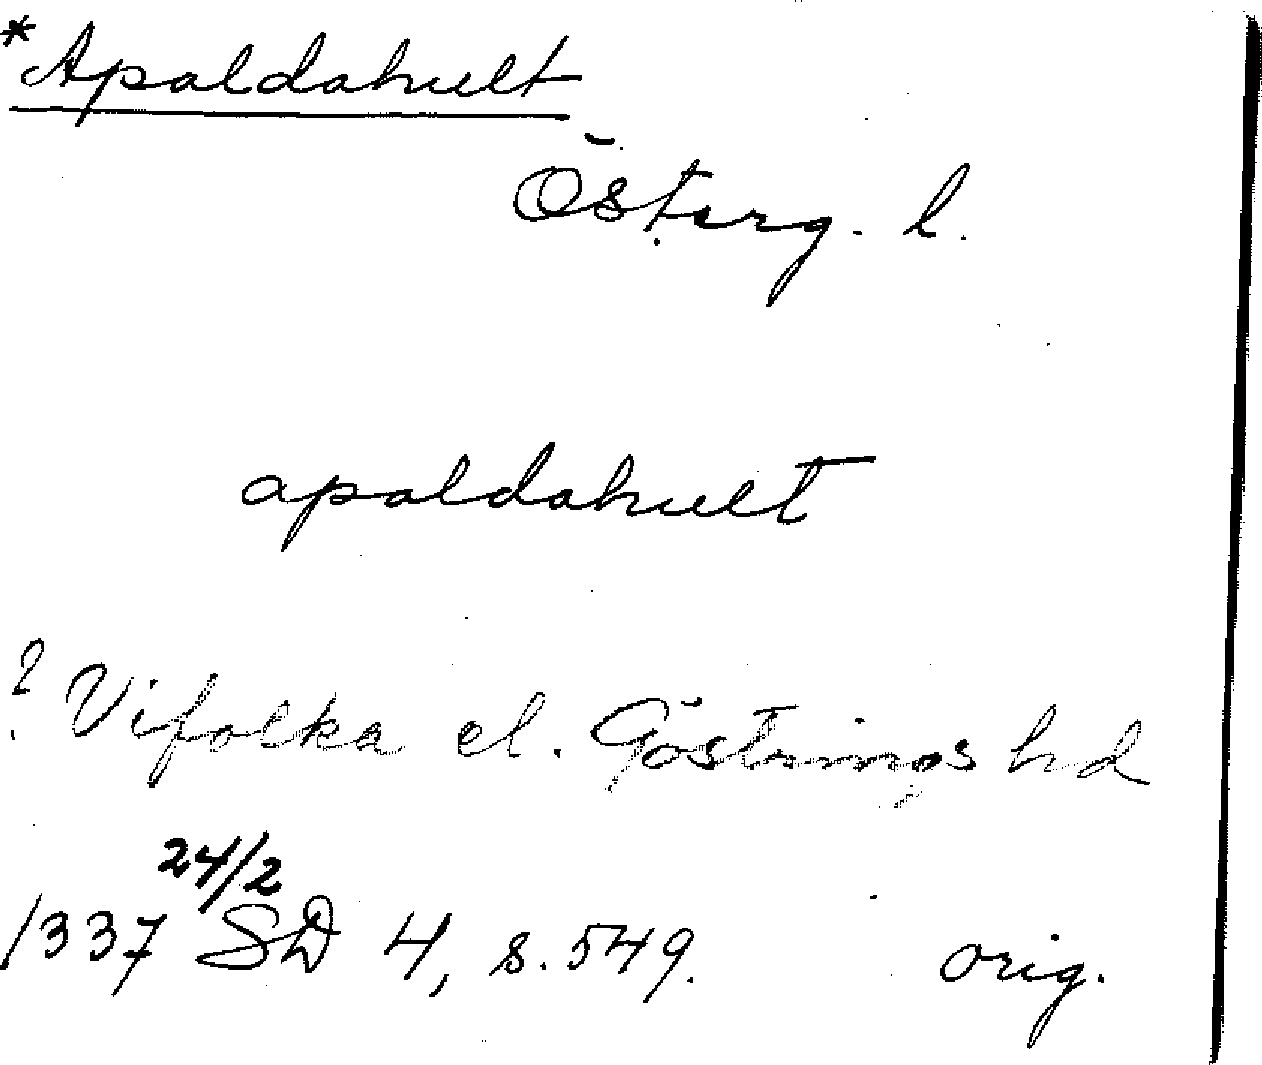 *Apaldahult
Österg. l.
apaldahult
? Vifolka el. Göstrings hd
24/2
1337 SD 4, s. 549. orig.